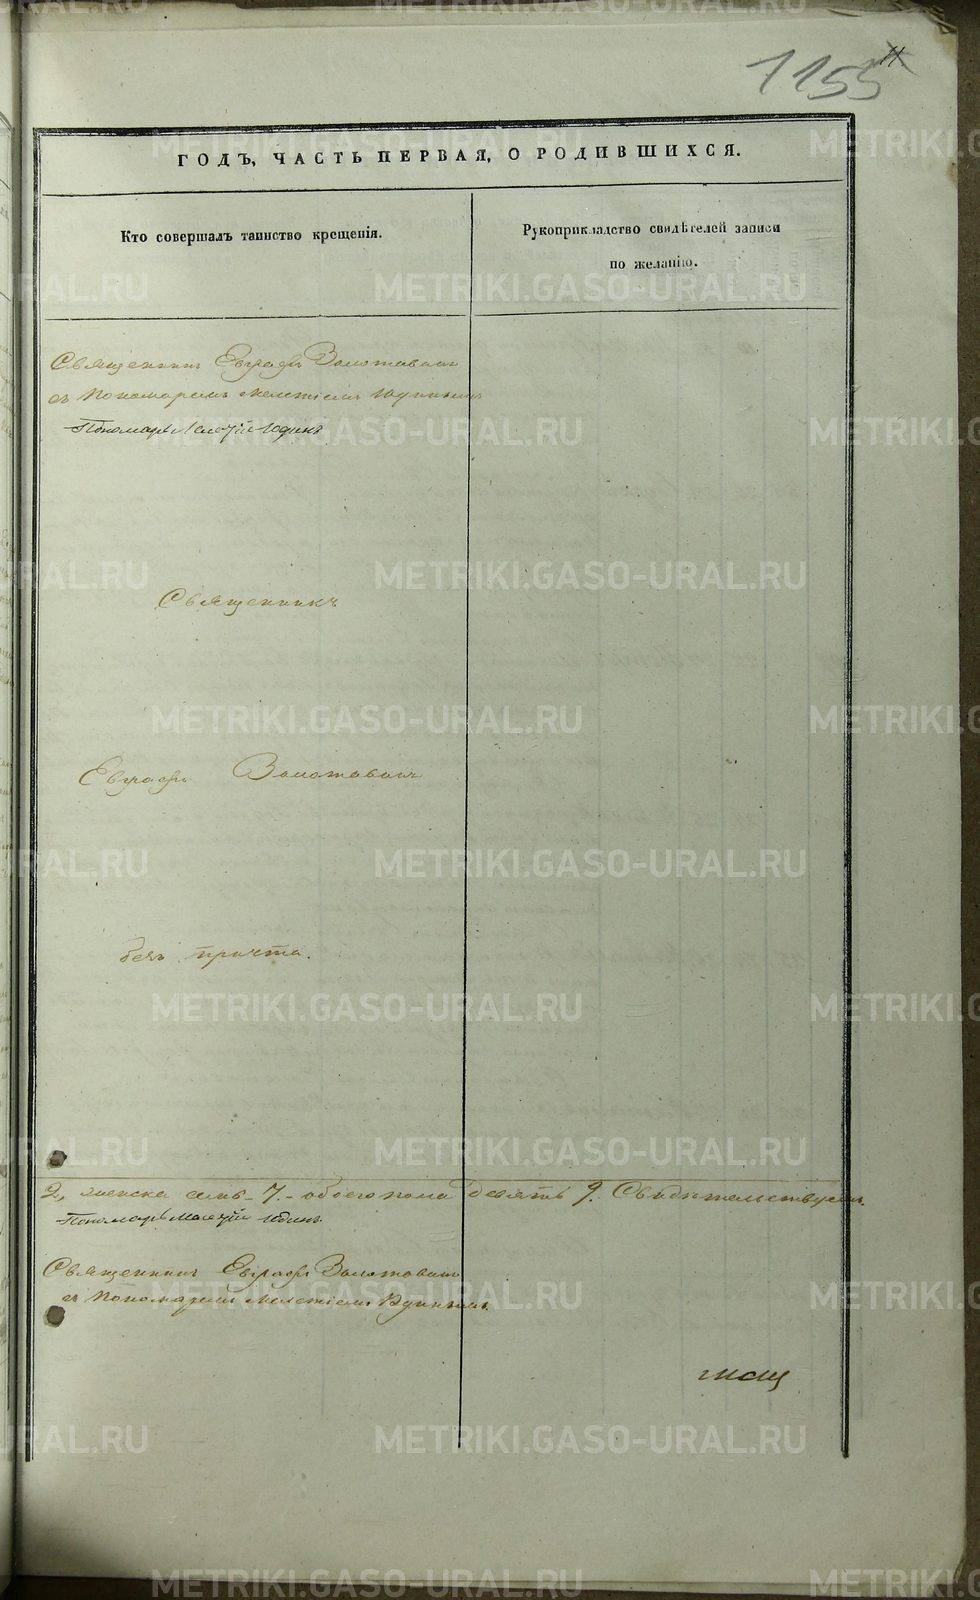 11
1155
ГОДЪ, ЧАСТЬ ПЕРВАЯ, О РОДИВШИХСЯ.
Кто совершалъ таинство крещенія.
Рукоприкладство свидѣтелей записи
по желанію.
Священникъ Евграфъ Золотавинъ
съ Пономаремъ Мелетіемъ Юдинымъ
Пономарь Мелетій Юдинъ
Священникъ
Евграфъ Золотавинъ
безъ причта.
2, женска семь 7. обоего пола девять 9. Свидетельствуем
Пономарь Мелетій Юдинъ
Священникъ Евграфъ Золотавинъ
съ Пономаремъ Мелетіемъ Юдинымъ
METRIKI.GASO-URAL.RU